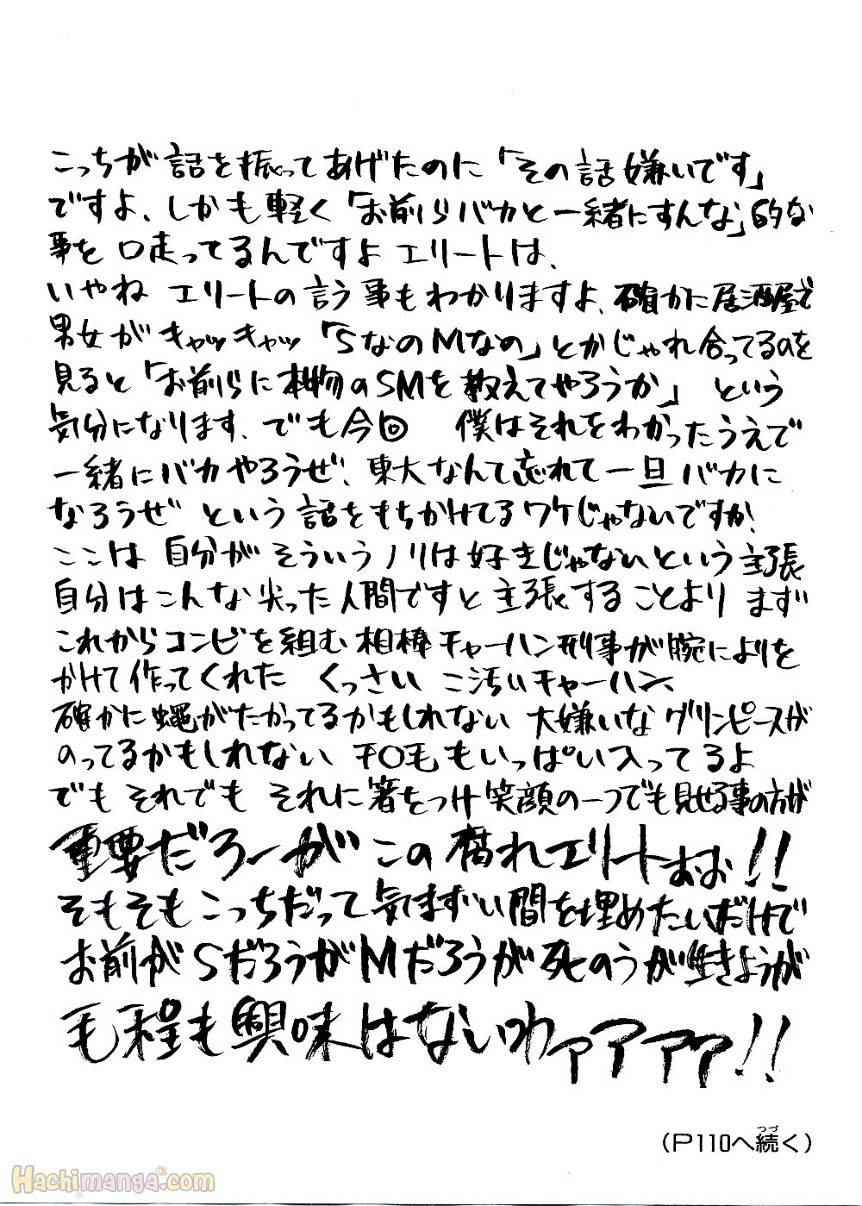 こっちが話を振ってあげたのに「その話嫌いです」
ですよ、しかも軽く「お前らバカと一緒にすんな」的な
事を口走ってるんですよエリートは、
いやね エリートの言う事もわかりますよ、確かに居酒屋で
男女がキャッキャッ「SなのMなの」とかじゃれ合ってるのを
見ると「お前らに本物のSMを教えてやろうか」という
気分になります、でも今回 僕はそれをわかったうえで
一緒にバカやろうぜ!東大なんて忘れて一旦バカに
なろうぜ という話をもちかけてるワケじゃないですか!
ここは自分がそういうノリは好きじゃないという主張
自分はこんな尖った人間ですと主張することより まず
これからコンビを組む相棒チャーハン刑事が腕によりを
かけて作ってくれた くっさい 小汚いチャーハン、
確かに蠅がたかってるかもしれない 大嫌いなグリンピースが
のってるかもしれない チ○毛もいっぱい入ってるよ
でも それでも それに箸をつけ笑顔の一つでも見せる事の方が
重要だろーがこの腐れエリートぉぉ!!
そもそもこっちだって気まずい間を埋めたいだけで
お前がSだろうがMだろうが死のうが生きようが
毛程も興味はないわァアアア!!
(P110へ続く)
つづ
Hachimanga.com